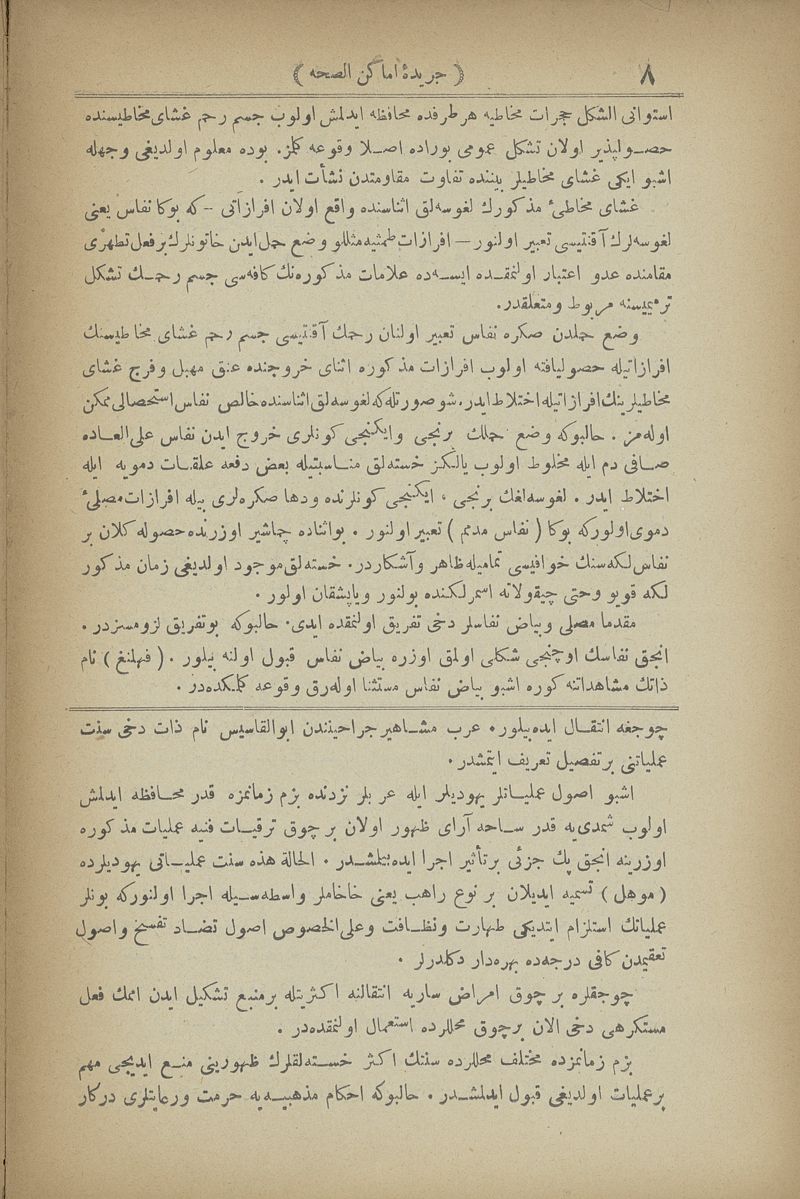 ٨
( جريدهٔ اماكن الصحه )
استوانی الشكل حجرات مخاطیه هر طرفده محافظه ایدلمش اولوب جسم رحم غشای مخاطیسنده
حصولپذیر اولان تشكل عمومی بوراده اصلا وقوعه كلمز. بوده معلوم اولدیغی وجهله
اشبو ایكی غشای مخاطیلر بیننده تفاوت مقاومتدن نشأت ایدر .
غشای مخاطیٔ مذكورك لغوسه‌لق اثناسنده واقع اولان افرازاتی – كه بوكا نفاس یعنی
لغوسه‌لرك آقنتیسی تعبیر اولنور – افرازات طمثیه مثللو وضع حمل ایدن خاتونلرك بر فعل تطهری
مقامنده عدو اعتبار اولنمقده ایسه‌ده علامات مذكوره‌نك كافه‌سی جسم رحمك تشكل
ترمیمیسنه مربوط ومتعلقدر.
وضع حملدن صكره نفاس تعبیر اولنان رحمك آقنتیسی جسم رحم غشای مخاطیسنك
افرازاتیله حصولیافته اولوب افرازات مذكوره اثنای خروجنده عنق مهبل وفرج غشای
مخاطیلرینك افرازاتیله اختلاط ایدر، شو صورتله كه لغوسه‌لق اثناسنده خالص نفاس استحصالی ممكن
اوله‌مز . حالبوكه وضع حملك برنجی وایكنجی كونلری خروج ایدن نفاس علی‌العاده
صافی دم ایله مخلوط اولوب یالكز خسته‌لق مناسبتیله بعض دفعه علقات دمویه ایله
اختلاط ایدر . لغوسه‌لغك برنجی ، ایكنجی كونلرنده ودها صكره‌لری بیله افرازات مصلیٔ
دموی اولوركه بوكا ( نفاس مدمم ) تعبیر اولنور . بواثناده چاشیر اوزرنده حصوله كلان بر
نفاس لكه‌سنك خوافیسی تمامیله ظاهر وآشكاردر. خسته‌لق موجود اولدیغی زمان مذكور
لكه قویو وحتی چیقولاته اسمرلكنده بولنور ویاپشقان اولور .
مقدما مصلی وبیاض نفاسلر دخی تفریق اولنمقده ایدی. حالبوكه بوتفریق لزومسزدر .
انجق نفاسك اوچنجی شكلی اولمق اوزره بیاض نفاس قبول اولنه بیلور . ( فهلنغ ) نام
ذاتك مشاهداتنه كوره اشبو بیاض نفاس مستثنا اوله‌رق وقوعه كلمكده‌در .
چوجغه انتقال ایده‌بیلور. عرب مشاهیر جراحیندن ابوالقاسیس نام ذات دخی سنت
عملیاتنی بر تفصیل تعریف ایتمشدر.
اشبو اصول عملیاتلر یهودیلر ایله عربلر نزدنده بزم زمانمزه قدر محافظه ایدلمش
اولوب شمدی‌یه قدر ساحه آرای ظهور اولان بر چوق ترقیات فنیه عملیات مذكوره
اوزرینه انجق پك جزئی بر تأثیر اجرا ایده‌بیلمشدر . الحالة هذه سنت عملیاتی یهودیلرده
( موهل ) تسمیه ایدیلان بر نوع راهب یعنی خاخاملر واسطه‌سیله اجرا اولنوركه بونلر
عملیاتك استلزام ایتدیكی طهارت ونظافت وعلی‌الخصوص اصول تضاد تفسخ واصول
تعقیمدن كافی درجه‌ده بهره‌دار دكلدرلر .
چوجقلره بر چوق امراض ساریه انتقالنه اكثریتله بر منبع تشكیل ایدن امك فعل
مستكرهی دخی الان بر چوق محللرده استعمال اولنمقده‌در .
بزم زمانمزده مختلف محللرده سنتك اكثر خسته‌لقلرك ظهورینی منع ایدیجی مهم
بر عملیات اولدیغی قبول ایدلمشدر . حالبوكه احكام مذهبیه‌یه حرمت ورعایتلری دركار